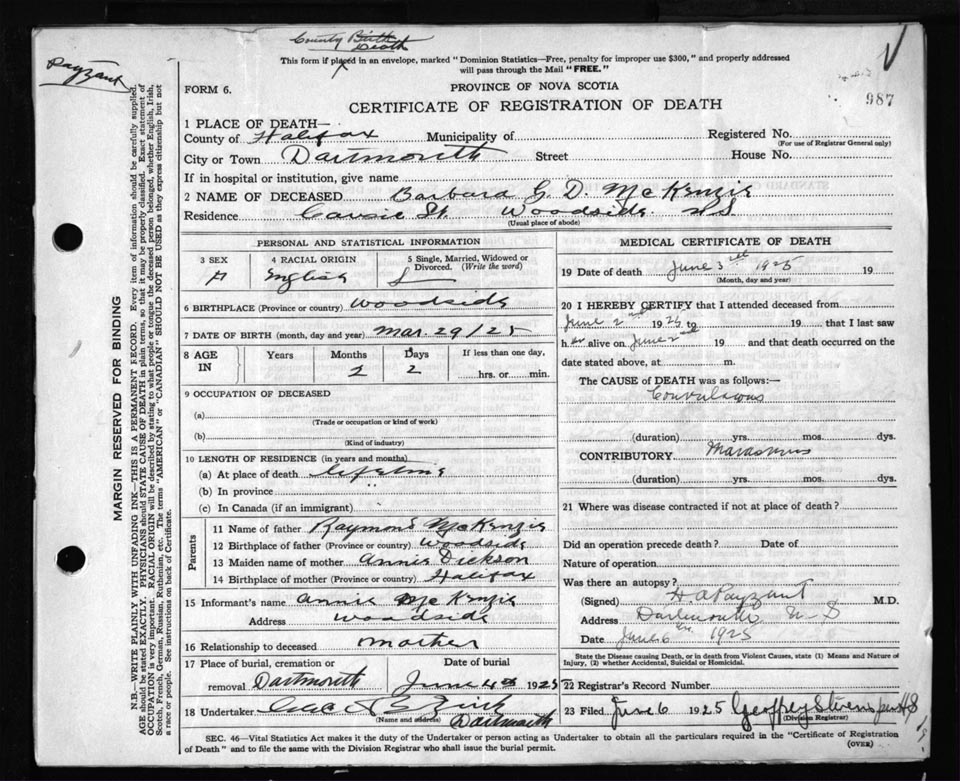 County Birth
Death
Payzant
This form if placed in an envelope, marked "Dominion Statistics—Free, penalty for improper use $300," and properly addressed
will pass through the Mail "FREE."
FORM 6.
PROVINCE OF NOVA SCOTIA
987
CERTIFICATE OF REGISTRATION OF DEATH
1 PLACE OF DEATH—
County of Halifax Municipality of Registered No.
(For use of Registrar General only)
City or Town Dartmouth Street House No.
If in hospital or institution, give name
2 NAME OF DECEASED Barbara G. D. McKenzie
Residence St. Woodside. N.S.
(Usual place of abode)
PERSONAL AND STATISTICAL INFORMATION
3 SEX 4 RACIAL ORIGIN 5 Single, Married, Widowed or Divorced. (Write the word)
English S
6 BIRTHPLACE (Province or country) Woodside
7 DATE OF BIRTH (month, day and year) Mar. 29/25
8 AGE IN Years Months Days If less than one day,
2 2 hrs. or min.
9 OCCUPATION OF DECEASED
(a)
(Trade or occupation or kind of work)
(b)
(Kind of industry)
10 LENGTH OF RESIDENCE (in years and months)
(a) At place of death lifetime
(b) In province
(c) In Canada (if an immigrant)
Parents
11 Name of father Raymond McKenzie
12 Birthplace of father (Province or country) Woodside
13 Maiden name of mother Annie Dickson
14 Birthplace of mother (Province or country) Halifax
15 Informant's name Annie McKenzie
Address Woodside
16 Relationship to deceased mother
17 Place of burial, cremation or Date of burial
removal Dartmouth June 4th 1925
18 Undertaker Zink
(Name and address) Dartmouth
MEDICAL CERTIFICATE OF DEATH
19 Date of death June 3rd 1925 19
(Month, day and year)
20 I HEREBY CERTIFY that I attended deceased from
June 2nd 1925 to 19 that I last saw
her alive on June 2nd 19 and that death occurred on the
date stated above, at m.
The CAUSE OF DEATH was as follows:—
Convulsions
(duration) yrs. mos. dys.
CONTRIBUTORY Marasmus
(duration) yrs. mos. dys.
21 Where was disease contracted if not at place of death?
Did an operation precede death? Date of
Nature of operation
Was there an autopsy?
(Signed) H A Payzant M.D.
Address Dartmouth N S
Date June 6th 1925
State the Disease causing Death, or in death from Violent Causes, state (1) Means and Nature of
Injury, (2) whether Accidental, Suicidal or Homicidal.
22 Registrar's Record Number
23 Filed June 6 1925 Geoffrey Stevens per HS
(Division Registrar)
SEC. 46—Vital Statistics Act makes it the duty of the Undertaker or person acting as Undertaker to obtain all the particulars required in the "Certificate of Registration
of Death" and to file the same with the Division Registrar who shall issue the burial permit.
(OVER)
MARGIN RESERVED FOR BINDING
N.B.—WRITE PLAINLY WITH UNFADING INK—THIS IS A PERMANENT RECORD. Every item of information should be carefully supplied.
AGE should be stated EXACTLY. PHYSICIANS should STATE CAUSE OF DEATH in plain terms, so that it may be properly classified. Exact statement of
OCCUPATION is very important. RACIAL ORIGIN will be described by stating to what people or tongue the deceased person belonged, whether English, Irish,
Scotch, French, German, Russian, Ruthenian, etc. The terms "AMERICAN" or "CANADIAN" SHOULD NOT BE USED as they express citizenship but not
a race or people. See instructions on back of Certificate.